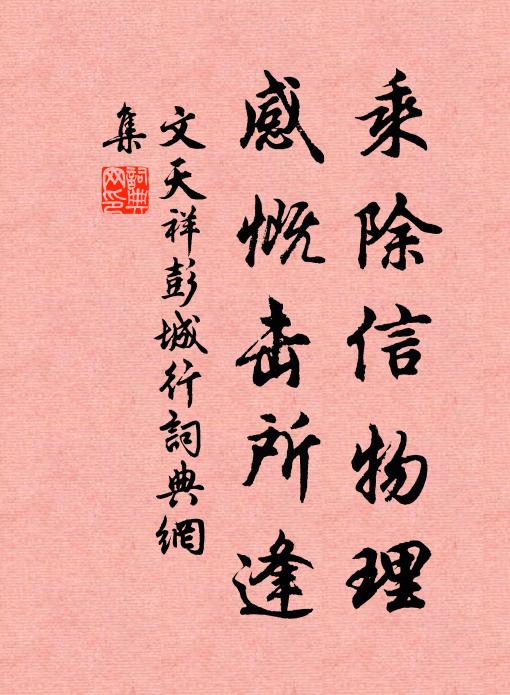 乘除信物理
感慨击所逢
文天祥彭城行詞典網
集
詞典网印